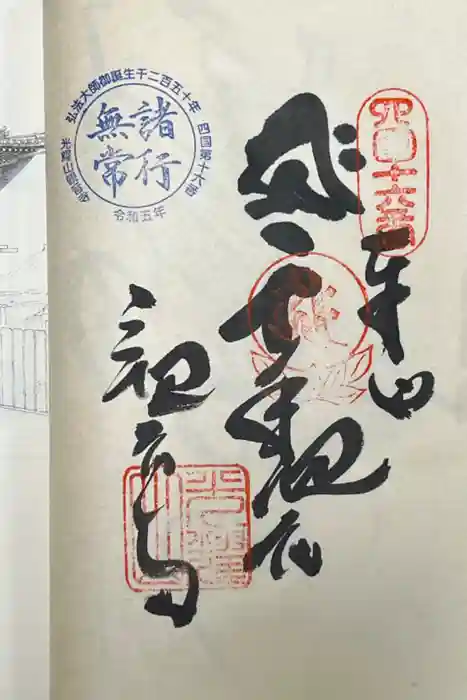 四國十六番
奉納
千手観音
観音寺
弘法大師御誕生千二百五十年
四国第十六番
光耀山観音寺
諸行
無常
令和五年
光耀山